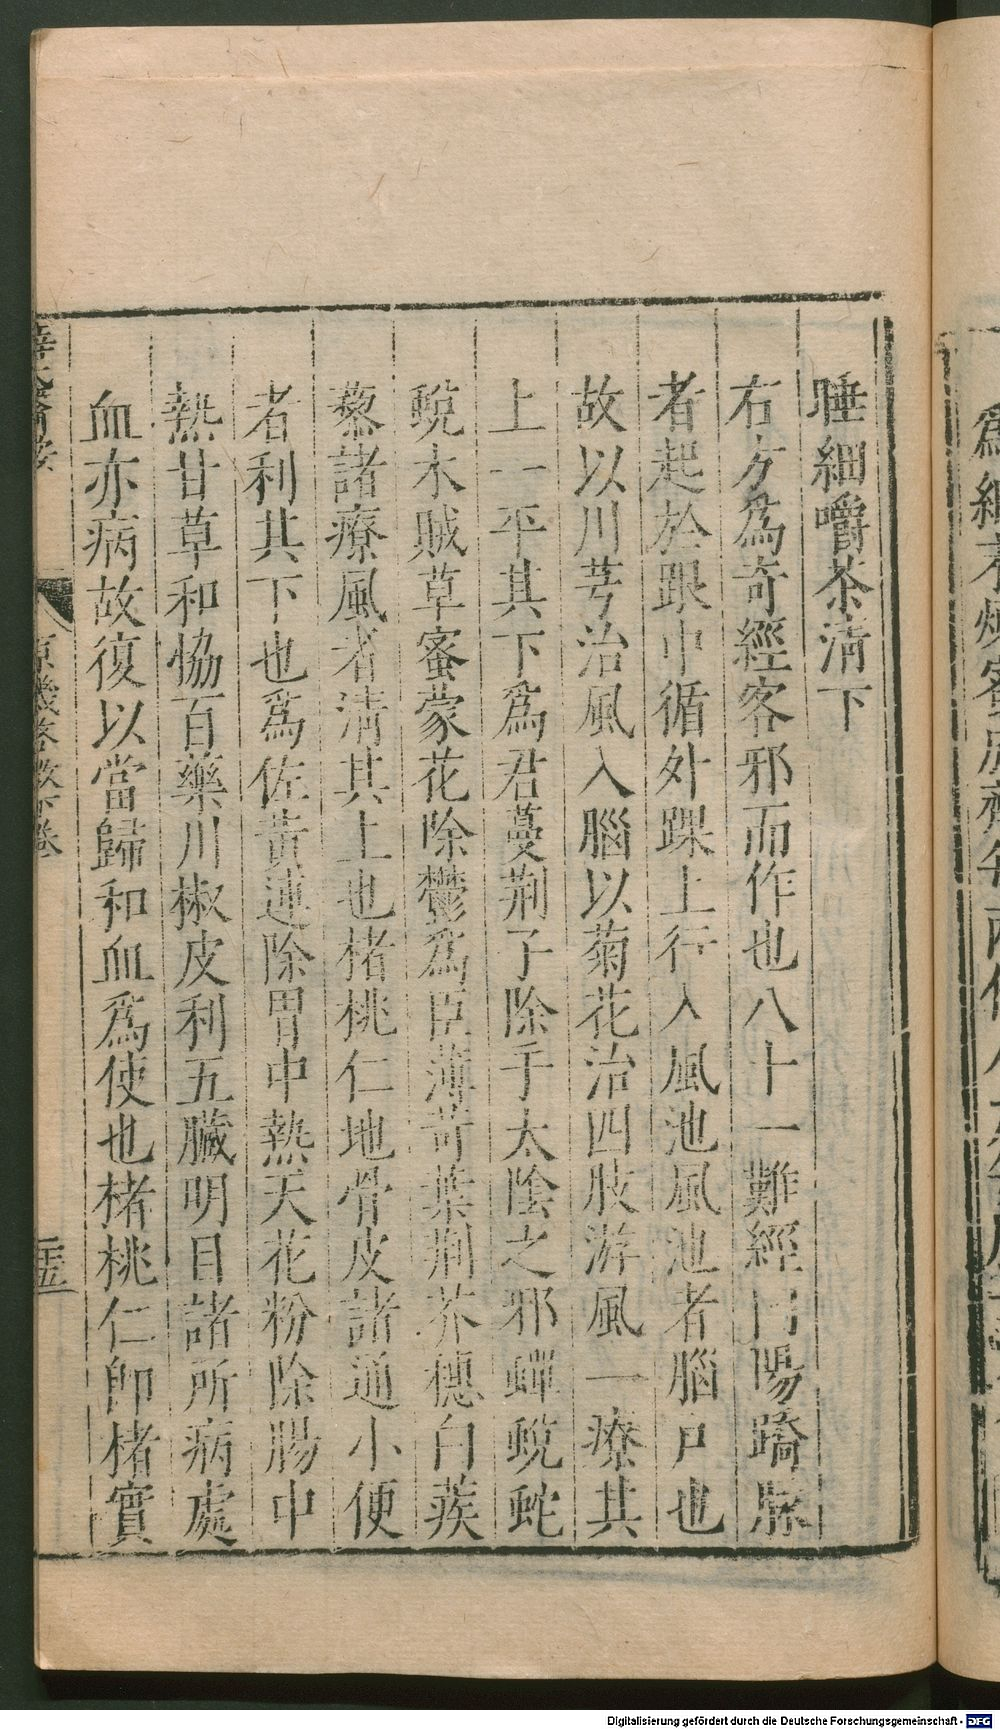 睡細嚼茶清下
右方爲奇經客邪而作也八十一難經曰陽蹻脉
者起於跟中循外踝上行入風池風池者腦戶也
故以川芎治風入腦以菊花治四肢游風一療其
上一平其下爲君蔓荆子除手太陰之邪蟬蛻蛇
蛻木賊草蜜蒙花除鬱爲臣薄苛葉荆芥穗白蒺
藜諸療風者清其上也楮桃仁地骨皮諸通小便
者利其下也爲佐黃連除胃中熱天花粉除腸中
熱甘草和恊百藥川椒皮利五臟明目諸所病處
血亦病故復以當歸和血爲使也楮桃仁卽楮實
原機啓微下卷
Digitalisierung gefördert durch die Deutsche Forschungsgemeinschaft - DFG